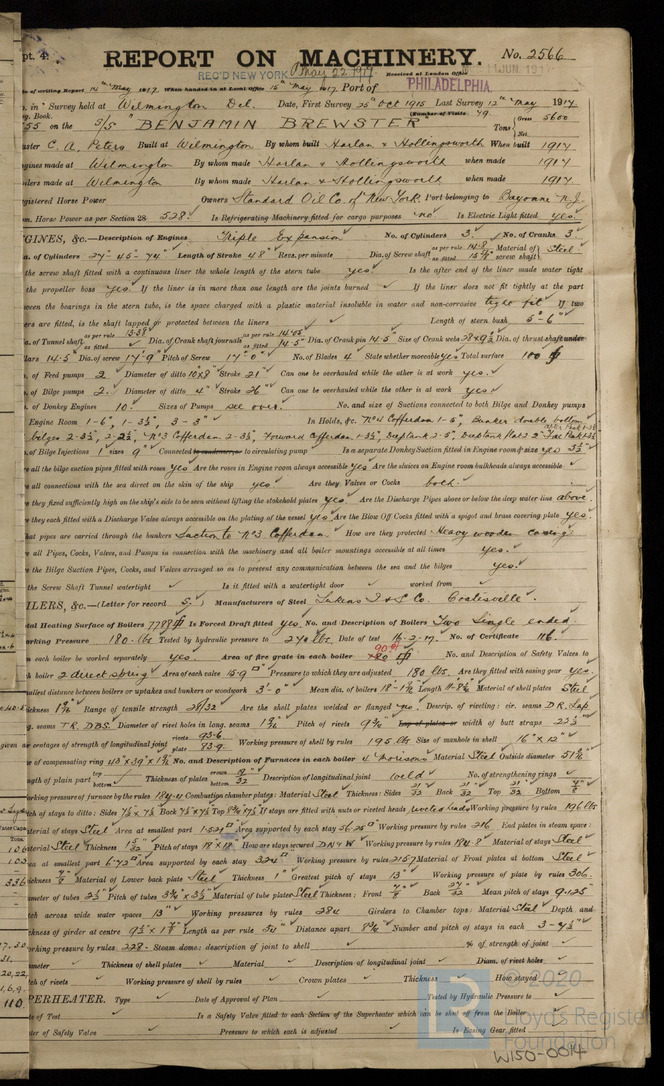 pt. 4.
REPORT ON MACHINERY. No. 2566
REC'D NEW YORK May 22 1917 Received at London Office 11 JUN. 1917
of writing Report 14th May 1917. When handed in at Local Office 15th May 1917. Port of PHILADELPHIA
in Survey held at Wilmington Del. Date, First Survey 25th Oct 1915 Last Survey 12th May 1917
g. Book. (Number of Visits 79.
55 on the S/S "BENJAMIN BREWSTER Tons Gross 5600 Net
aster C. A. Peters Built at Wilmington By whom built Harlan & Hollingsworth When built 1917
ngines made at Wilmington By whom made Harlan & Hollingsworth when made 1917
oilers made at Wilmington By whom made Harlan & Hollingsworth when made 1917
gistered Horse Power Owners Standard Oil Co. of New York Port belonging to Bayonne N.J.
m. Horse Power as per Section 28 528. Is Refrigerating Machinery fitted for cargo purposes no Is Electric Light fitted yes
GINES, &c.—Description of Engines Triple Expansion No. of Cylinders 3 No. of Cranks 3
a. of Cylinders 27-45-74" Length of Stroke 48" Revs. per minute Dia. of Screw shaft as per rule 14.8 as fitted 15¾" Material of screw shaft Steel
the screw shaft fitted with a continuous liner the whole length of the stern tube yes Is the after end of the liner made water tight
the propeller boss yes If the liner is in more than one length are the joints burned If the liner does not fit tightly at the part
ween the bearings in the stern tube, is the space charged with a plastic material insoluble in water and non-corrosive tight fit If two
ers are fitted, is the shaft lapped or protected between the liners Length of stern bush 5'-6"
a. of Tunnel shaft as per rule 13.38 as fitted Dia. of Crank shaft journals as per rule 14.05 as fitted 14.5 Dia. of Crank pin 14.5 Size of Crank webs 28x9½ Dia. of thrust shaft under
llars 14.5 Dia. of screw 17'9" Pitch of Screw 17'0" No. of Blades 4 State whether moveable yes Total surface 100
o. of Feed pumps 2 Diameter of ditto 10x8" Stroke 21" Can one be overhauled while the other is at work yes.
o. of Bilge pumps 2. Diameter of ditto 4" Stroke 26" Can one be overhauled while the other is at work yes
o. of Donkey Engines 10. Sizes of Pumps see over. No. and size of Suctions connected to both Bilge and Donkey pumps
Engine Room 1-6", 1-3½", 3-3" In Holds, &c. No 4 Cofferdam 1-5", Bunker double bottom
bilges 2-3½", 2-2½", No 3 Cofferdam 2-3½", Forward Cofferdam 1-3½", Deeptank 2-5",
o. of Bilge Injections 1 sizes 9" Connected to condenser, or to circulating pump Is a separate Donkey Suction fitted in Engine room & size yes 3½"
re all the bilge suction pipes fitted with roses yes Are the roses in Engine room always accessible yes Are the sluices on Engine room bulkheads always accessible
re all connections with the sea direct on the skin of the ship yes Are they Valves or Cocks both.
re they fixed sufficiently high on the ship's side to be seen without lifting the stokehold plates yes Are the Discharge Pipes above or below the deep water line above.
re they each fitted with a Discharge Valve always accessible on the plating of the vessel yes Are the Blow Off Cocks fitted with a spigot and brass covering plate yes.
hat pipes are carried through the bunkers Suction to No 3 Cofferdam How are they protected Heavy wooden casing
re all Pipes, Cocks, Valves, and Pumps in connection with the machinery and all boiler mountings accessible at all times yes.
re the Bilge Suction Pipes, Cocks, and Valves arranged so as to prevent any communication between the sea and the bilges yes.
the Screw Shaft Tunnel watertight Is it fitted with a watertight door worked from
ILERS, &c.—(Letter for record S.) Manufacturers of Steel Lukens I & S Co. Coatesville.
tal Heating Surface of Boilers 7788 Is Forced Draft fitted yes No. and Description of Boilers Two Single ended.
orking Pressure 180 lbs Tested by hydraulic pressure to 270 lbs. Date of test 16.2.17. No. of Certificate 116.
n each boiler be worked separately yes Area of fire grate in each boiler 90 No. and Description of Safety Valves to
h boiler 2 direct spring Area of each valve 15.9 Pressure to which they are adjusted 180 lbs. Are they fitted with easing gear yes.
mallest distance between boilers or uptakes and bunkers or woodwork 3'-0" Mean dia. of boilers 18'-1½" Length 11'-8½" Material of shell plates Steel
ickness Range of tensile strength 28/32 Are the shell plates welded or flanged yes. Descrip. of riveting: cir. seams D.R. Lap
g. seams T.R. D.B.S. Diameter of rivet holes in long. seams Pitch of rivets 9¾" Lap of plates or width of butt straps 22½"
er centages of strength of longitudinal joint rivets 93.6 plate 83.9. Working pressure of shell by rules 195 lbs Size of manhole in shell 16" x 12"
ze of compensating ring No. and Description of Furnaces in each boiler 4 Morisons Material Steel Outside diameter
ngth of plain part top bottom Thickness of plates crown bottom 19/32 Description of longitudinal joint weld No. of strengthening rings
orking pressure of furnace by the rules 184.4 Combustion chamber plates: Material Steel Thickness: Sides 21/32 Back 21/32 Top 21/32 Bottom
tch of stays to ditto: Sides 7½"x7½ Back 7½x7½ Top If stays are fitted with nuts or riveted heads riveted heads Working pressure by rules 196 lbs
aterial of stays Steel Area at smallest part Area supported by each stay 56.25 Working pressure by rules 216 End plates in steam space:
aterial Steel Thickness Pitch of stays 18 x 18 How are stays secured D.N & W Working pressure by rules 184.8 Material of stays Steel
ea at smallest part 6.73 Area supported by each stay 324 Working pressure by rules 215.7 Material of Front plates at bottom Steel
ickness Material of Lower back plate Steel Thickness 1" Greatest pitch of stays 13" Working pressure of plate by rules 306.
iameter of tubes 2½" Pitch of tubes 3¾" x 3½" Material of tube plates Steel Thickness: Front Back 27/32 Mean pitch of stays 9.125
tch across wide water spaces 13" Working pressures by rules 284 Girders to Chamber tops: Material Steel Depth and
ickness of girder at centre Length as per rule 34" Distance apart 8¾" Number and pitch of stays in each 3-7½"
orking pressure by rules 228. Steam dome: description of joint to shell % of strength of joint
ameter Thickness of shell plates Material Description of longitudinal joint Diam. of rivet holes
tch of rivets Working pressure of shell by rules Crown plates Thickness How stayed
PERHEATER. Type Date of Approval of Plan Tested by Hydraulic Pressure to
te of Test Is a Safety Valve fitted to each Section of the Superheater which can be shut off from the Boiler
ter of Safety Valve Pressure to which each is adjusted Is Easing Gear fitted
© 2020
LR
Lloyd's Register
Foundation
W150-0014